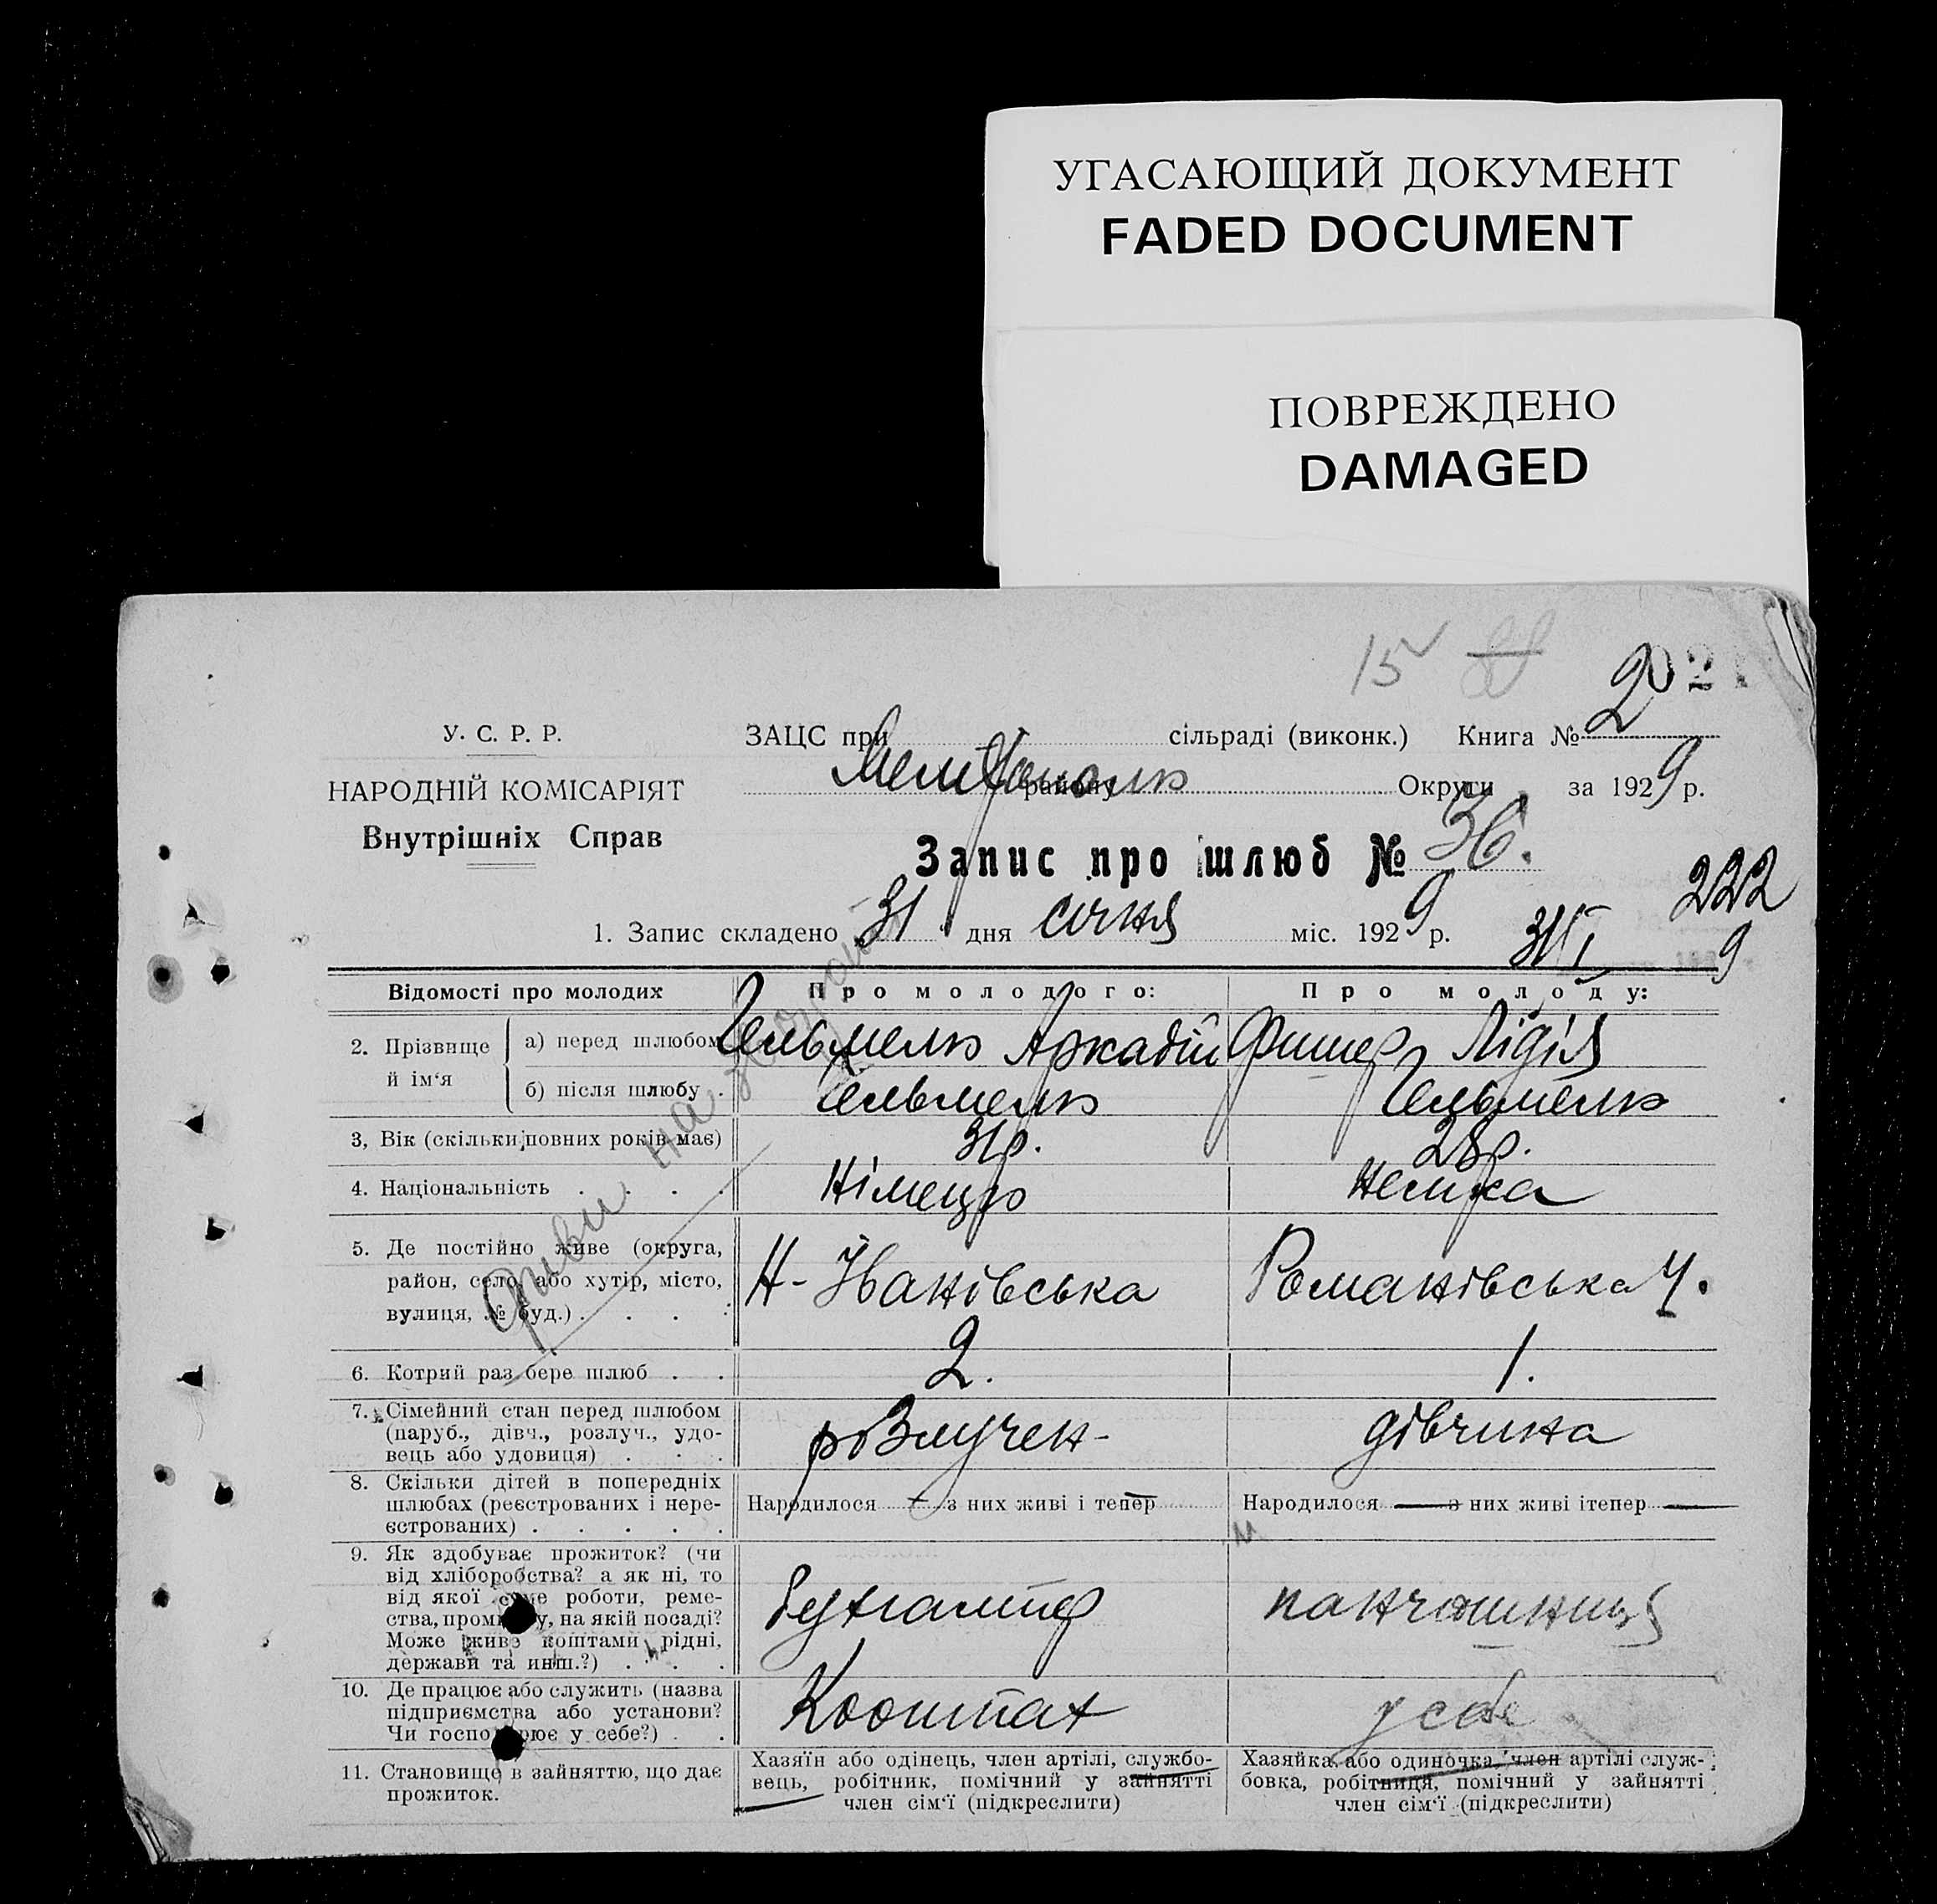 УГАСАЮЩИЙ ДОКУМЕНТ
FADED DOCUMENT
ПОВРЕЖДЕНО
DAMAGED
15
У. С. Р. Р.
НАРОДНІЙ КОМІСАРІЯТ
Внутрішніх Справ
ЗАЦС при сільраді (виконк.) Книга № 2
Мелітополь району Округи за 1929 р.
Запис про шлюб № 36.
222
1. Запис складено 31 дня січня міс. 1929 р. 31/I 9
Відомості про молодих
Про молодого:
Про молоду:
2. Прізвище й ім'я
а) перед шлюбом
Гельмель Аркадій
Фишер Лідія
б) після шлюбу .
Гельмель
Гельмель
3, Вік (скільки повних років має)
31р.
28р.
4. Національність . . . .
Німець
Немка
5. Де постійно живе (округа,
район, село, або хутір, місто,
вулиця, № буд.) . . . .
Н-Іванівська
2.
Романівська 4.
6. Котрий раз бере шлюб . .
2.
1.
7. Сімейний стан перед шлюбом
(паруб., дівч., розлуч., удо-
вець або удовиця) . . .
розлучен-
дівчина
8. Скільки дітей в попередніх
шлюбах (реєстрованих і нере-
єстрованих) . . . . .
Народилося — з них живі і тепер —
Народилося — з них живі ітепер —
9. Як здобуває прожиток? (чи
від хліборобства? а як ні, то
від якої саме роботи, реме-
ства, промислу, на якій посаді?
Може живе коштами рідні,
держави та инш.?) . . .
Бухгалтер
панчошниця
10. Де працює або служить (назва
підприємства або установи?
Чи господарює у себе?) . .
Коопштах
у себе
11. Становище в зайняттю, що дає
прожиток.
Хазяїн або одінець, член артілі, службо-
вець, робітник, помічний у зайнятті
член сім'ї (підкреслити)
Хазяйка, або одиночка, член артілі служ-
бовка, робітниця, помічний у зайнятті
член сім'ї (підкреслити)
диви на